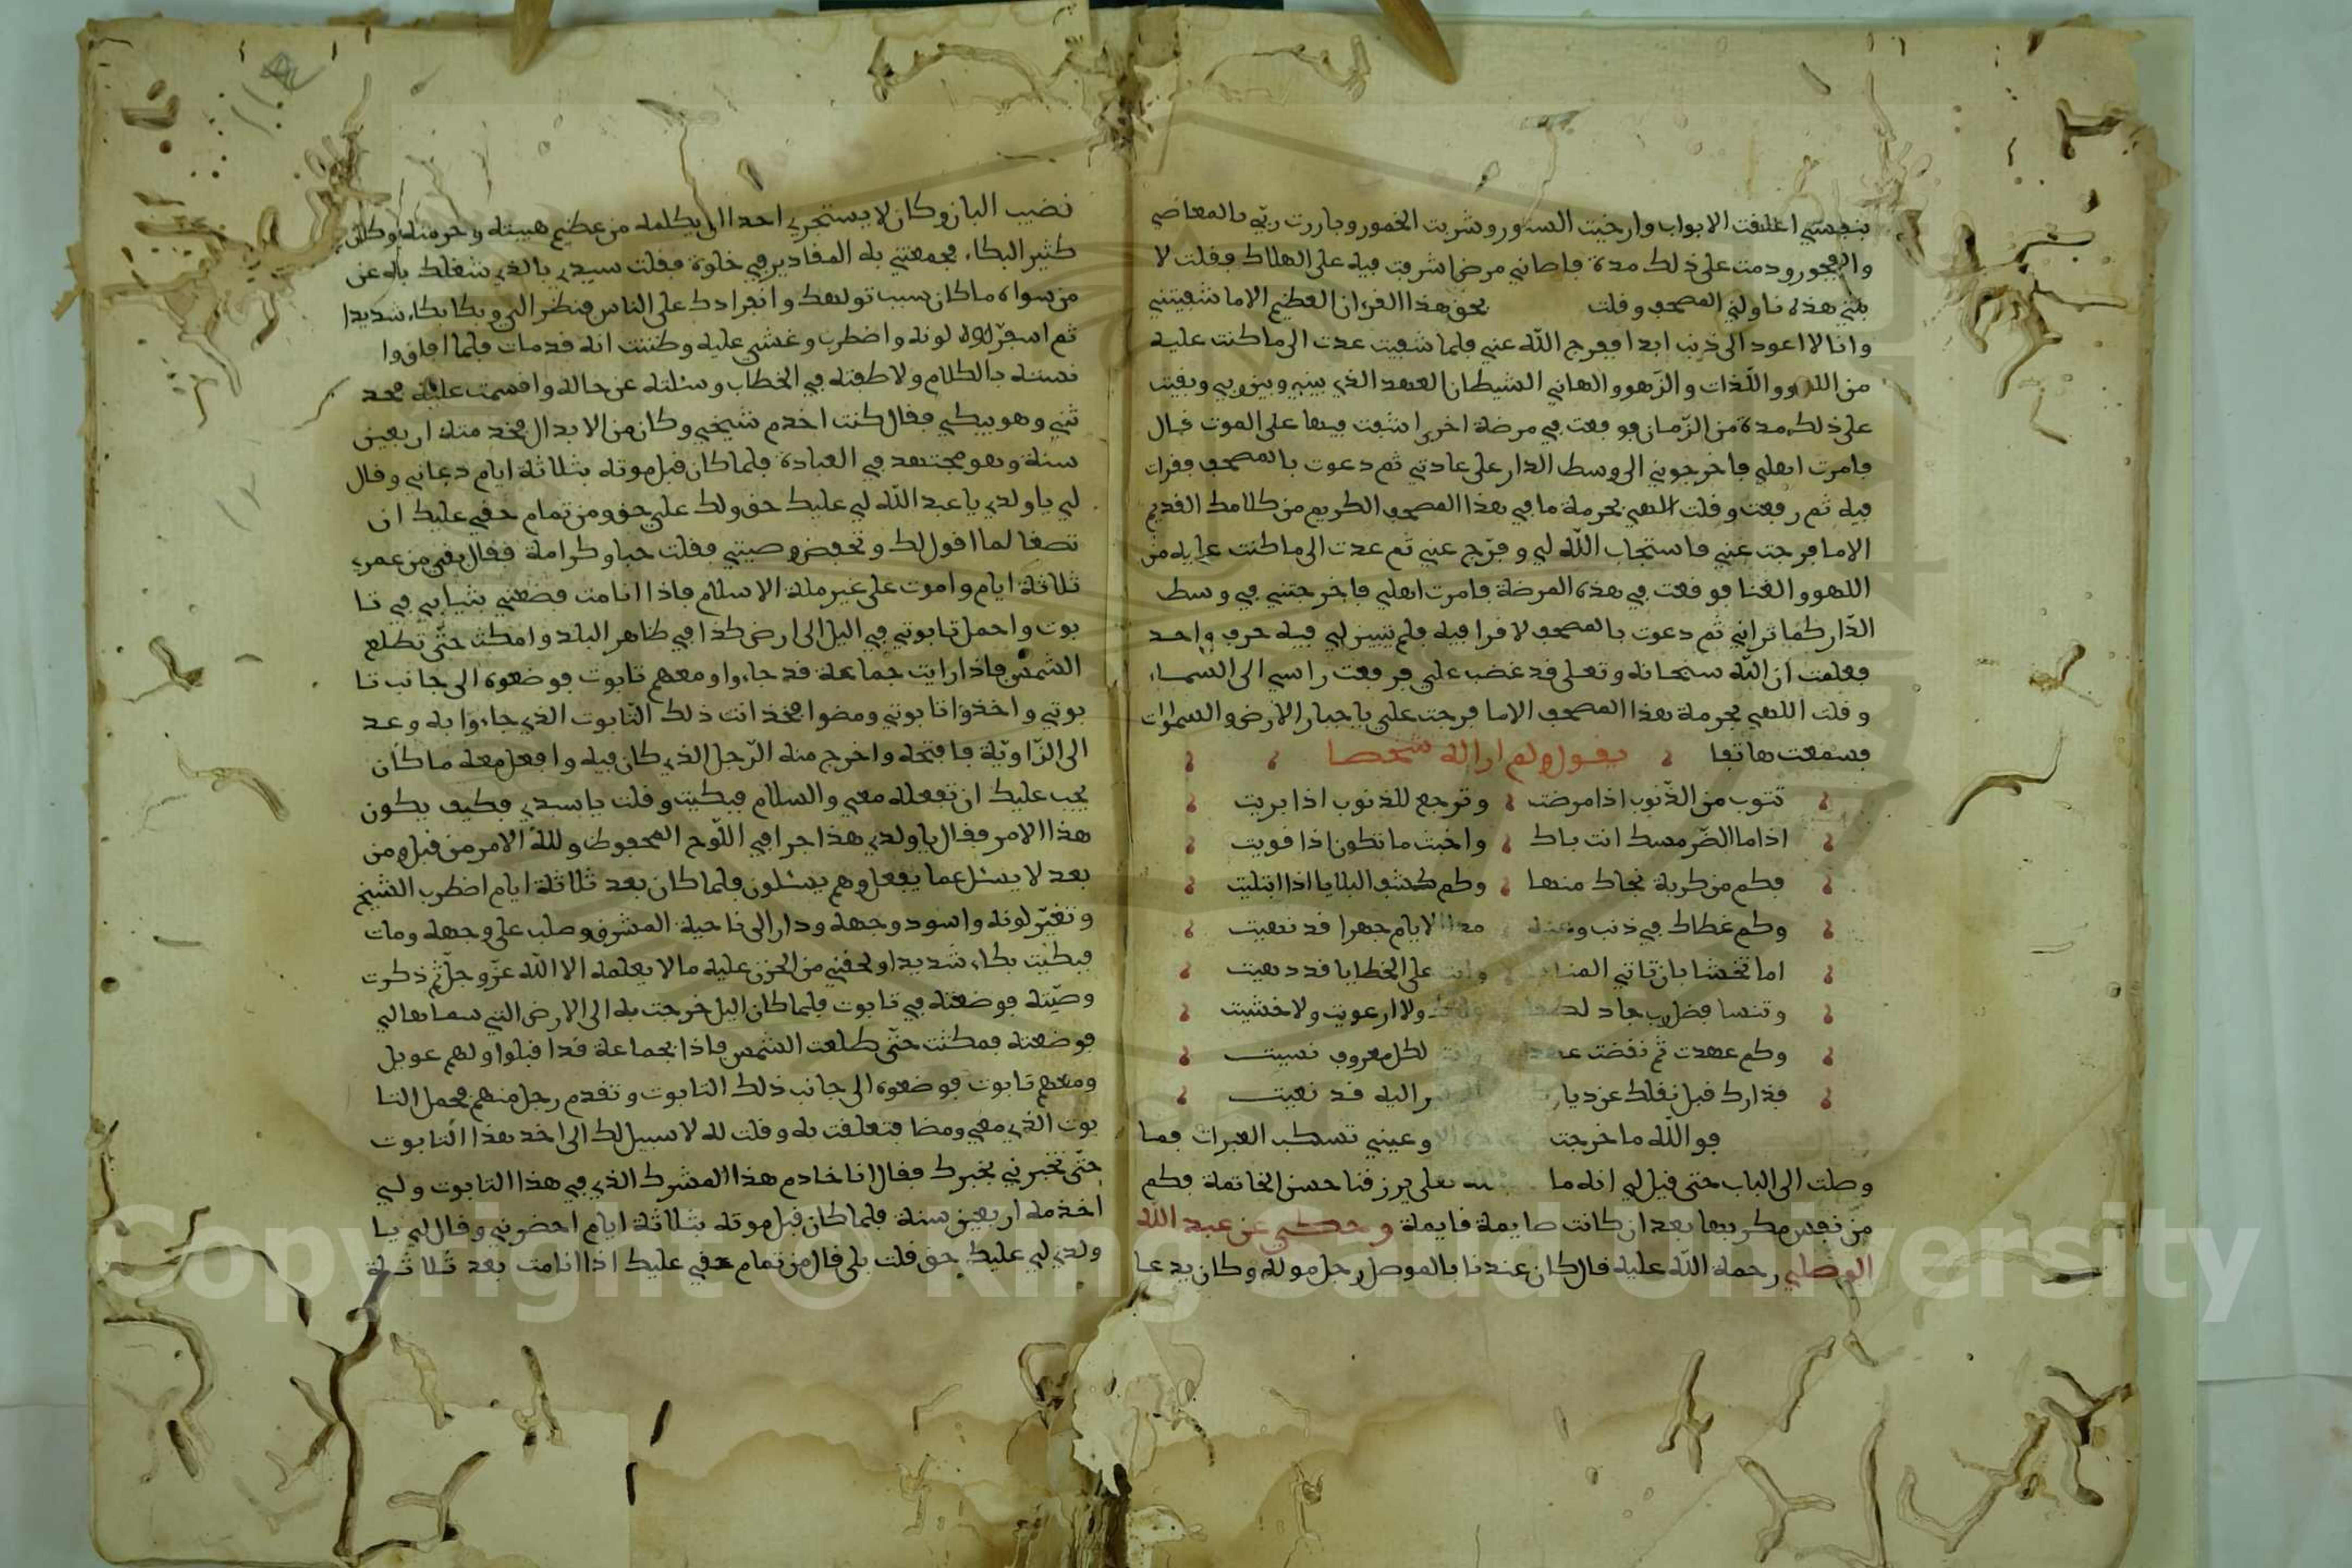 بنفسي اغلقت الابواب وارخيت الستور وشربت الخمور وبارزت ربّي بالمعاصي
والفجور ودمت على ذلك مدة فاصابني مرض اشرفت فيه على الهلاك فقلت لا
بنتي هذه ناوليني المصحف وقلت بحق هذا القران العظيم الا ما شفيتني
وانا لا اعود الى ذنب ابدا ففرج الله عني فلما شفيت عدت الى ما كنت عليه
من اللهو واللّذات والزهو والهاني الشيطان العهد الذي بيني وبين ربي وبقيت
على ذلك مدة من الزّمان فوقعت في مرضة اخرى اشفت فيها على الموت قال
فامرت اهلي فاخرجوني الى وسط الدار على عادتي ثم دعوت بالمصحف فقرات
فيه ثم رفعت وقلت اللهي بحرمة ما في هذا المصحف الكريم من كلامك القديم
الا ما فرجت عني فاستجاب الله لي وفرّج عني ثم عدت الى ما كنت عليه من
اللهو والغنا فوقعت في هذه المرضة فامرت اهلي فاخرجتني في وسط
الدّار كما تراني ثم دعوت بالمصحف لاقرا فيه فلم تبين لي فيه حرف واحد
فعلمت ان الله سبحانه وتعلى قد غضب علي فرفعت راسي الى السماء
وقلت اللهي بحرمة هذا المصحف الا ما فرجت علي يا جبار الارض والسموات
فسمعت هاتفا يقول ولم ار اله شخصا
تتوب من الذّنوب اذا مرضت وترجع للذنوب اذا بريت
اذا ما الضّر مسك انت باك واخبث ما تكون اذا قويت
فكم من كربة نجاك منها وكم كشف البلايا اذا ابتليت
وكم غطاك في ذنب وعنه مدا الايام جهرا قد نهيت
اما تخشا بان تاتي المنايا وانت على الخطايا قد دهيت
وتنسا فضل رب جاد ولا ارعويت ولا خشيت
وكم عهدت ثم نقضت عهدا وانت لكل معروف نسيت
فدارك قبل نقلك عن ديار اليه قد نعيت
فو الله ما خرجت وعيني تسكب العبرات فما
وصلت الى الباب حتى قيل لي انه مات الله تعلى يرزقنا حسن الخاتمة فكم
من نفس مكر بها بعد ان كانت صايمة قايمة وحكي عن عبد الله
الموصلي رحمة الله عليه قال كان عندنا بالموصل رجل موله وكان يدعا
قضيب البان وكان لا يستجري احد ان يكلمه من عظيم هيبته وحرمته وكان
كثير البكاء فجمعتني به المقادير في خلوة فقلت سيدي بالذي شغلك به عن
من سواه ما كان سبب تولهك وانفرادك على الناس فنظر الي وبكا بكاء شديدا
ثم اسفرّ لونه واضطرب وغشي عليه وظننت انه قد مات فلما افاق وا
نسته بالكلام ولاطفته في الخطاب وسئلته عن حاله واقسمت عليه فحد
ثني وهو يبكي فقال كنت اخدم شيخي وكان من الابدال فخدمته اربعين
سنة وهو مجتهد في العبادة فلما كان قبل موته بثلاثة ايام دعاني وقال
لي يا ولدي يا عبد الله لي عليك حق ولك علي حق ومن تمام حقي عليك ان
تصغا لما اقول لك وتحفض وصيتي فقلت حبا وكرامة فقال بقي من عمري
ثلاثة ايام واموت على غير ملة الاسلام فاذا انا مت فضعني بثيابي في تا
بوت واحمل تابوتي في اليل الى ارض كذا في ظاهر البلد وامكث حتّى تطلع
الشمس فاذا رايت جماعة قد جاءوا ومعهم تابوت فوضعوه الى جانب تا
بوتي واخذوا تابوتي ومضوا فخذ انت ذلك التابوت الذي جاءوا به وعد
الى الزّاويّة فافتحه واخرج منه الرّجل الذي كان فيه وافعل معه ما كان
يجب عليك ان تفعله معي والسلام فبكيت وقلت يا سيدي فكيف يكون
هذا الامر فقال يا ولدي هذا جرا في اللّوح المحفوظ ولله الامر من قبل ومن
بعد لا يسئل عما يفعل وهم يسئلون فلما كان بعد ثلاثة ايام اضطرب الشيخ
وتغيّر لونه واسود وجهه ودار الى ناحية المشرق وصلب على وجهه ومات
فبكيت بكاء شديدا ولحقني من الحزن عليه ما لا يعلمه الا الله عزّ وجلّ ثم ذكرت
وصيّته فوضعته في تابوت فلما كان اليل خرجت به الى الارض التي سماها لي
فوضعته فمكثت حتّى طلعت الشمس فاذا بجماعة قد اقبلوا ولهم عويل
ومعهم تابوت فوضعوه الى جانب ذلك التابوت وتقدم رجل منهم فحمل التا
بوت الذي معي ومضا فتعلقت به وقلت له لا سبيل لك الى اخذ هذا التابوت
حتّى تخبرني بخبرك فقال انا خادم هذا المشرك الذي في هذا التابوت ولي
اخدمه اربعين سنة فلما كان قبل موته بثلاثة ايام احضرني وقال لي يا
ولدي لي عليك حق قلت بلى قال من تمام حقي عليك اذا انا مت بعد ثلاثة